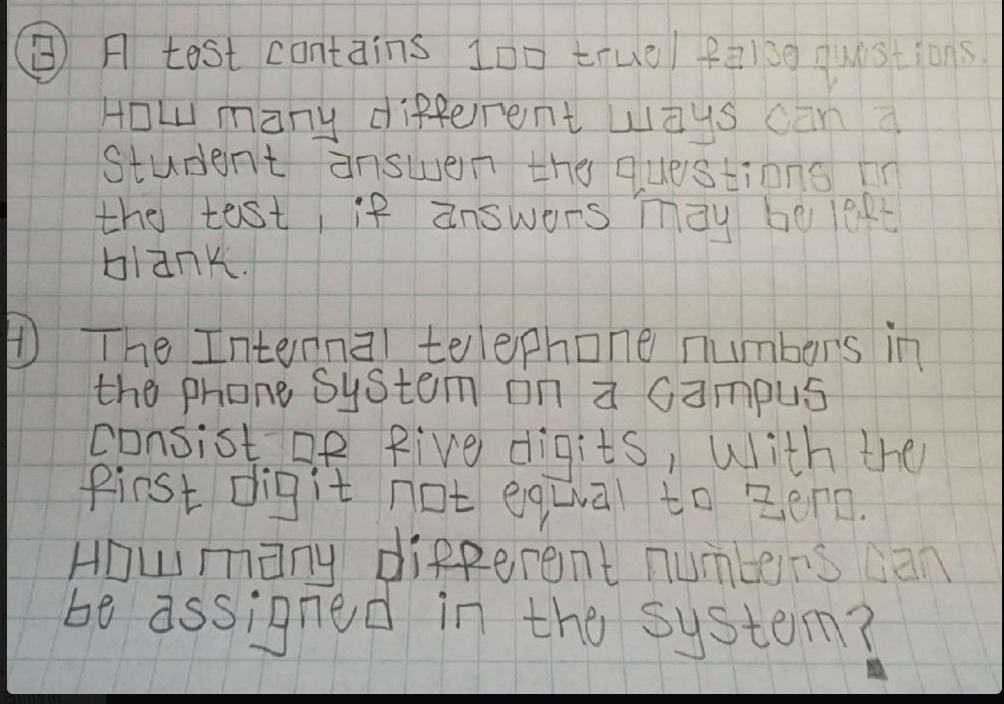 3 A test contains 100 true/false questions.
How many different ways can a
student answer the questions on
the test, if answers may be left
blank.
4) The Internal telephone numbers in
the phone system on a campus
consist of five digits, with the
first digit not equal to zero.
How many different numbers can
be assigned in the system?